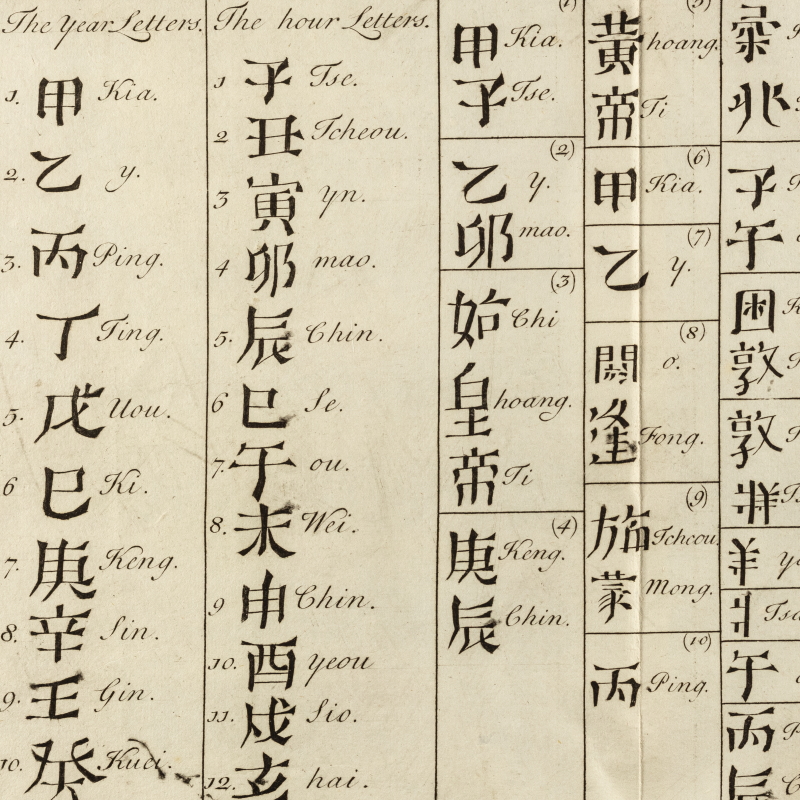 The Year Letters.
1. 甲 Kia.
2. 乙 y.
3. 丙 Ping.
4. 丁 Ting.
5. 戊 Uou.
6 巳 Ki.
7. 庚 Keng.
8. 辛 Sin.
9. 壬 Gin.
10. 癸 Kuei.
The hour Letters.
1 子 Tse.
2 丑 Tcheou.
3 寅 yn.
4 卯 mao.
5. 辰 Chin.
6 巳 Se.
7. 午 ou.
8. 未 Wei.
9 申 Chin.
10. 酉 yeou
11. 戌 Sio.
12. 亥 hai.
(1)
甲 Kia.
子 Tse.
(2)
乙 y.
卯 mao.
(3)
始 Chi
皇 hoang.
帝 Ti
(4)
庚 Keng.
辰 Chin.
(5)
黃 hoang.
帝 Ti
(6)
甲 Kia.
(7)
乙 y.
(8)
閼 o.
逢 Fong.
(9)
旃 Tcheou.
蒙 Mong.
(10)
丙 Ping.
兆
子
午
困
敦
敦
羊
午
丙
辰